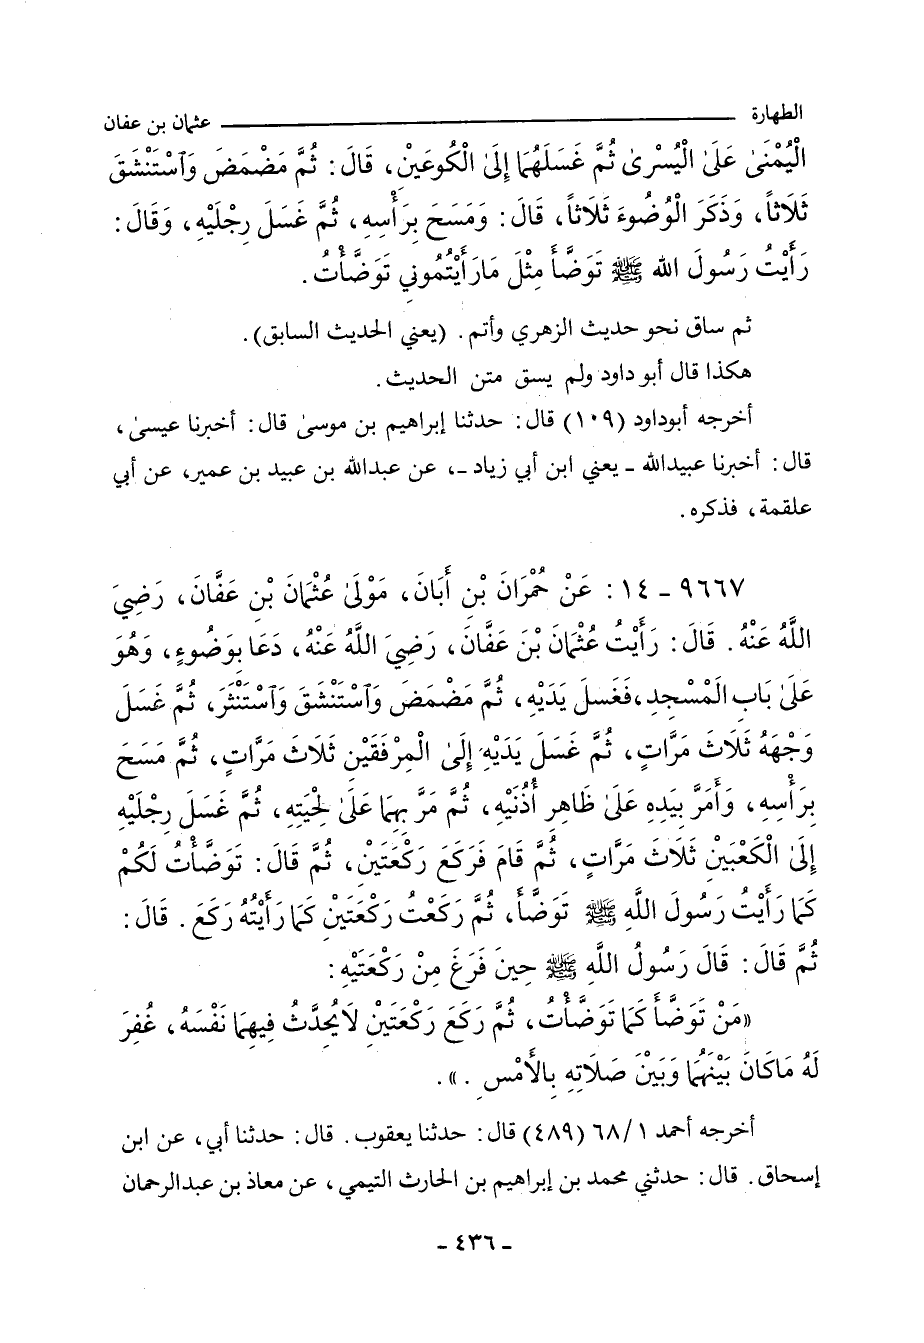 الطهارة ــــــــــــــــــــــــــــــــــــــــ عثمان بن عفان
الْيُمْنَىٰ عَلَىٰ الْيُسْرَىٰ ثُمَّ غَسَلَهُمَا إِلَىٰ الْكُوعَيْنِ، قَالَ: ثُمَّ مَضْمَضَ وَٱسْتَنْشَقَ
ثَلَاثاً، وَذَكَرَ الْوُضُوءَ ثَلَاثاً، قَالَ: وَمَسَحَ بِرَأْسِهِ، ثُمَّ غَسَلَ رِجْلَيْهِ، وَقَالَ:
رَأَيْتُ رَسُولَ الله ﷺ تَوَضَّأَ مِثْلَ مَارَأَيْتُمُونِي تَوَضَّأْتُ.
ثم ساق نحو حديث الزهري وأتم. (يعني الحديث السابق).
هكذا قال أبو داود ولم يسق متن الحديث.
أخرجه أبوداود (١٠٩) قال: حدثنا إبراهيم بن موسىٰ قال: أخبرنا عيسىٰ،
قال: أخبرنا عبيدالله ـ يعني ابن أبي زياد ـ، عن عبدالله بن عبيد بن عمير، عن أبي
علقمة، فذكره.
٩٦٦٧ ـ ١٤: عَنْ حُمْرَانَ بْنِ أَبَانَ، مَوْلَىٰ عُثْمَانَ بْنِ عَفَّانَ، رَضِيَ
اللَّهُ عَنْهُ. قَالَ: رَأَيْتُ عُثْمَانَ بْنَ عَفَّانَ، رَضِيَ اللَّهُ عَنْهُ، دَعَا بِوَضُوءٍ، وَهُوَ
عَلَىٰ بَابِ الْمَسْجِدِ،فَغَسلَ يَدَيْهِ، ثُمَّ مَضْمَضَ وَٱسْتَنْشَقَ وَٱسْتَنْثَرَ، ثُمَّ غَسَلَ
وَجْهَهُ ثَلَاثَ مَرَّاتٍ، ثُمَّ غَسَلَ يَدَيْهِ إِلَىٰ الْمِرْفَقَيْنِ ثَلَاثَ مَرَّاتٍ، ثُمَّ مَسَحَ
بِرَأْسِهِ، وَأَمَرَّ بِيَدِهِ عَلَىٰ ظَاهِرِ أُذُنَيْهِ، ثُمَّ مَرَّ بِهِمَا عَلَىٰ لِحْيَتِهِ، ثُمَّ غَسَلَ رِجْلَيْهِ
إِلَىٰ الْكَعْبَيْنِ ثَلَاثَ مَرَّاتٍ، ثُمَّ قَامَ فَرَكَعَ رَكْعَتَيْنِ، ثُمَّ قَالَ: تَوَضَّأْتُ لَكُمْ
كَمَا رَأَيْتُ رَسُولَ اللَّهِ ﷺ تَوَضَّأَ، ثُمَّ رَكَعْتُ رَكْعَتَيْنِ كَمَا رَأَيْتُهُ رَكَعَ. قَالَ:
ثُمَّ قَالَ: قَالَ رَسُولُ اللَّهِ ﷺ حِينَ فَرَغَ مِنْ رَكْعَتَيْهِ:
«مَنْ تَوَضَّأَ كَمَا تَوَضَّأْتُ، ثُمَّ رَكَعَ رَكْعَتَيْنِ لَايُحَدِّثُ فِيهِمَا نَفْسَهُ، غُفِرَ
لَهُ مَاكَانَ بَيْنَهُمَا وَبَيْنَ صَلَاتِهِ بِالأَمْسِ .».
أخرجه أحمد ٦٨/١ (٤٨٩) قال: حدثنا يعقوب. قال: حدثنا أبي، عن ابن
إسحاق. قال: حدثني محمد بن إبراهيم بن الحارث التيمي، عن معاذ بن عبدالرحمان
ـ ٤٣٦ ـ